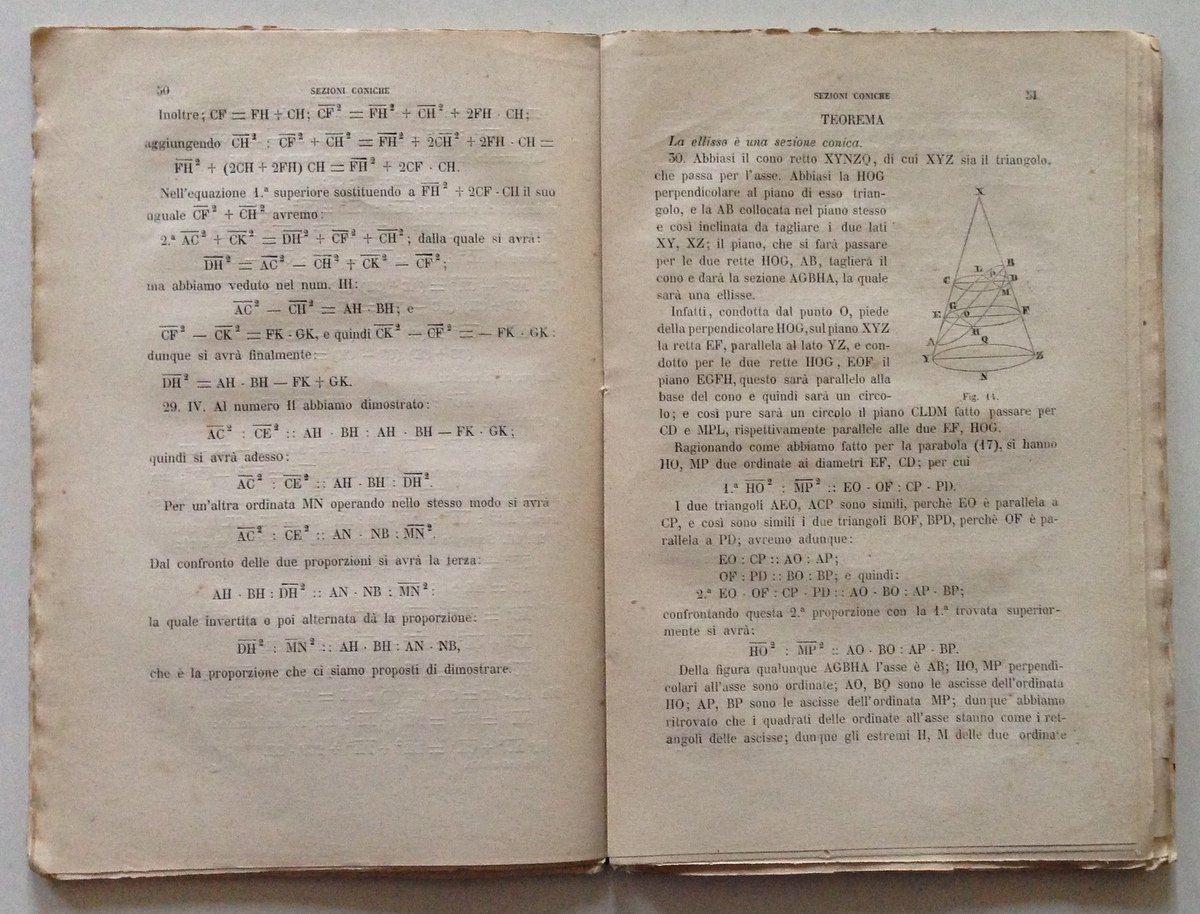 50 SEZIONI CONICHE
Inoltre; CF = FH + CH; C̅F̅² = F̅H̅² + C̅H̅² + 2FH · CH;
aggiungendo C̅H̅² : C̅F̅² + C̅H̅² = F̅H̅² + 2C̅H̅² + 2FH · CH =
F̅H̅² + (2CH + 2FH) CH = F̅H̅² + 2CF · CH.
Nell'equazione 1.ª superiore sostituendo a F̅H̅² + 2CF · CH il suo
uguale C̅F̅² + C̅H̅² avremo:
2.ª A̅C̅² + C̅K̅² = D̅H̅² + C̅F̅² + C̅H̅²; dalla quale si avrà:
D̅H̅² = A̅C̅² — C̅H̅² + C̅K̅² — C̅F̅²;
ma abbiamo veduto nel num. III:
A̅C̅² — C̅H̅² = AH · BH; e
C̅F̅² — C̅K̅² = FK · GK, e quindi C̅K̅² — C̅F̅² = — FK · GK
dunque si avrà finalmente:
D̅H̅² = AH · BH — FK + GK.
29. IV. Al numero II abbiamo dimostrato:
A̅C̅² : C̅E̅² :: AH · BH : AH · BH — FK · GK;
quindi si avrà adesso:
A̅C̅² : C̅E̅² :: AH · BH : D̅H̅².
Per un'altra ordinata MN operando nello stesso modo si avrà
A̅C̅² : C̅E̅² :: AN · NB : M̅N̅².
Dal confronto delle due proporzioni si avrà la terza:
AH · BH : D̅H̅² :: AN · NB : M̅N̅² :
la quale invertita e poi alternata dà la proporzione:
D̅H̅² : M̅N̅² :: AH · BH : AN · NB,
che è la proporzione che ci siamo proposti di dimostrare.
SEZIONI CONICHE 51
TEOREMA
La ellisse è una sezione conica.
30. Abbiasi il cono retto XYNZQ, di cui XYZ sia il triangolo,
che passa per l'asse. Abbiasi la HOG
perpendicolare al piano di esso trian-
golo, e la AB collocata nel piano stesso
e così inclinata da tagliare i due lati
XY, XZ; il piano, che si farà passare
per le due rette HOG, AB, taglierà il
cono e darà la sezione AGBHA, la quale
sarà una ellisse.
Infatti, condotta dal punto O, piede
della perpendicolare HOG, sul piano XYZ
la retta EF, parallela al lato YZ, e con-
dotto per le due rette HOG, EOF il
piano EGFH, questo sarà parallelo alla
base del cono e quindi sarà un circo-
lo; e così pure sarà un circolo il piano CLDM fatto passare per
CD e MPL, rispettivamente parallele alle due EF, HOG.
X
L
P
B
C
D
M
G
E
O
F
H
A
Q
Y
Z
N
Fig. 14.
Ragionando come abbiamo fatto per la parabola (17), si hanno
HO, MP due ordinate ai diametri EF, CD; per cui
1.ª H̅O̅² : M̅P̅² :: EO · OF : CP · PD.
I due triangoli AEO, ACP sono simili, perchè EO è parallela a
CP, e così sono simili i due triangoli BOF, BPD, perchè OF è pa-
rallela a PD; avremo adunque:
EO : CP :: AO : AP;
OF : PD :: BO : BP; e quindi:
2.ª EO · OF : CP · PD :: AO · BO : AP · BP;
confrontando questa 2.ª proporzione con la 1.ª trovata superior-
mente si avrà:
H̅O̅² : M̅P̅² :: AO · BO : AP · BP.
Della figura qualunque AGBHA l'asse è AB; HO, MP perpendi-
colari all'asse sono ordinate; AO, BO sono le ascisse dell'ordinata
HO; AP, BP sono le ascisse dell'ordinata MP; dunque abbiamo
ritrovato che i quadrati delle ordinate all'asse stanno come i ret-
angoli delle ascisse; dunque gli estremi H, M delle due ordinate